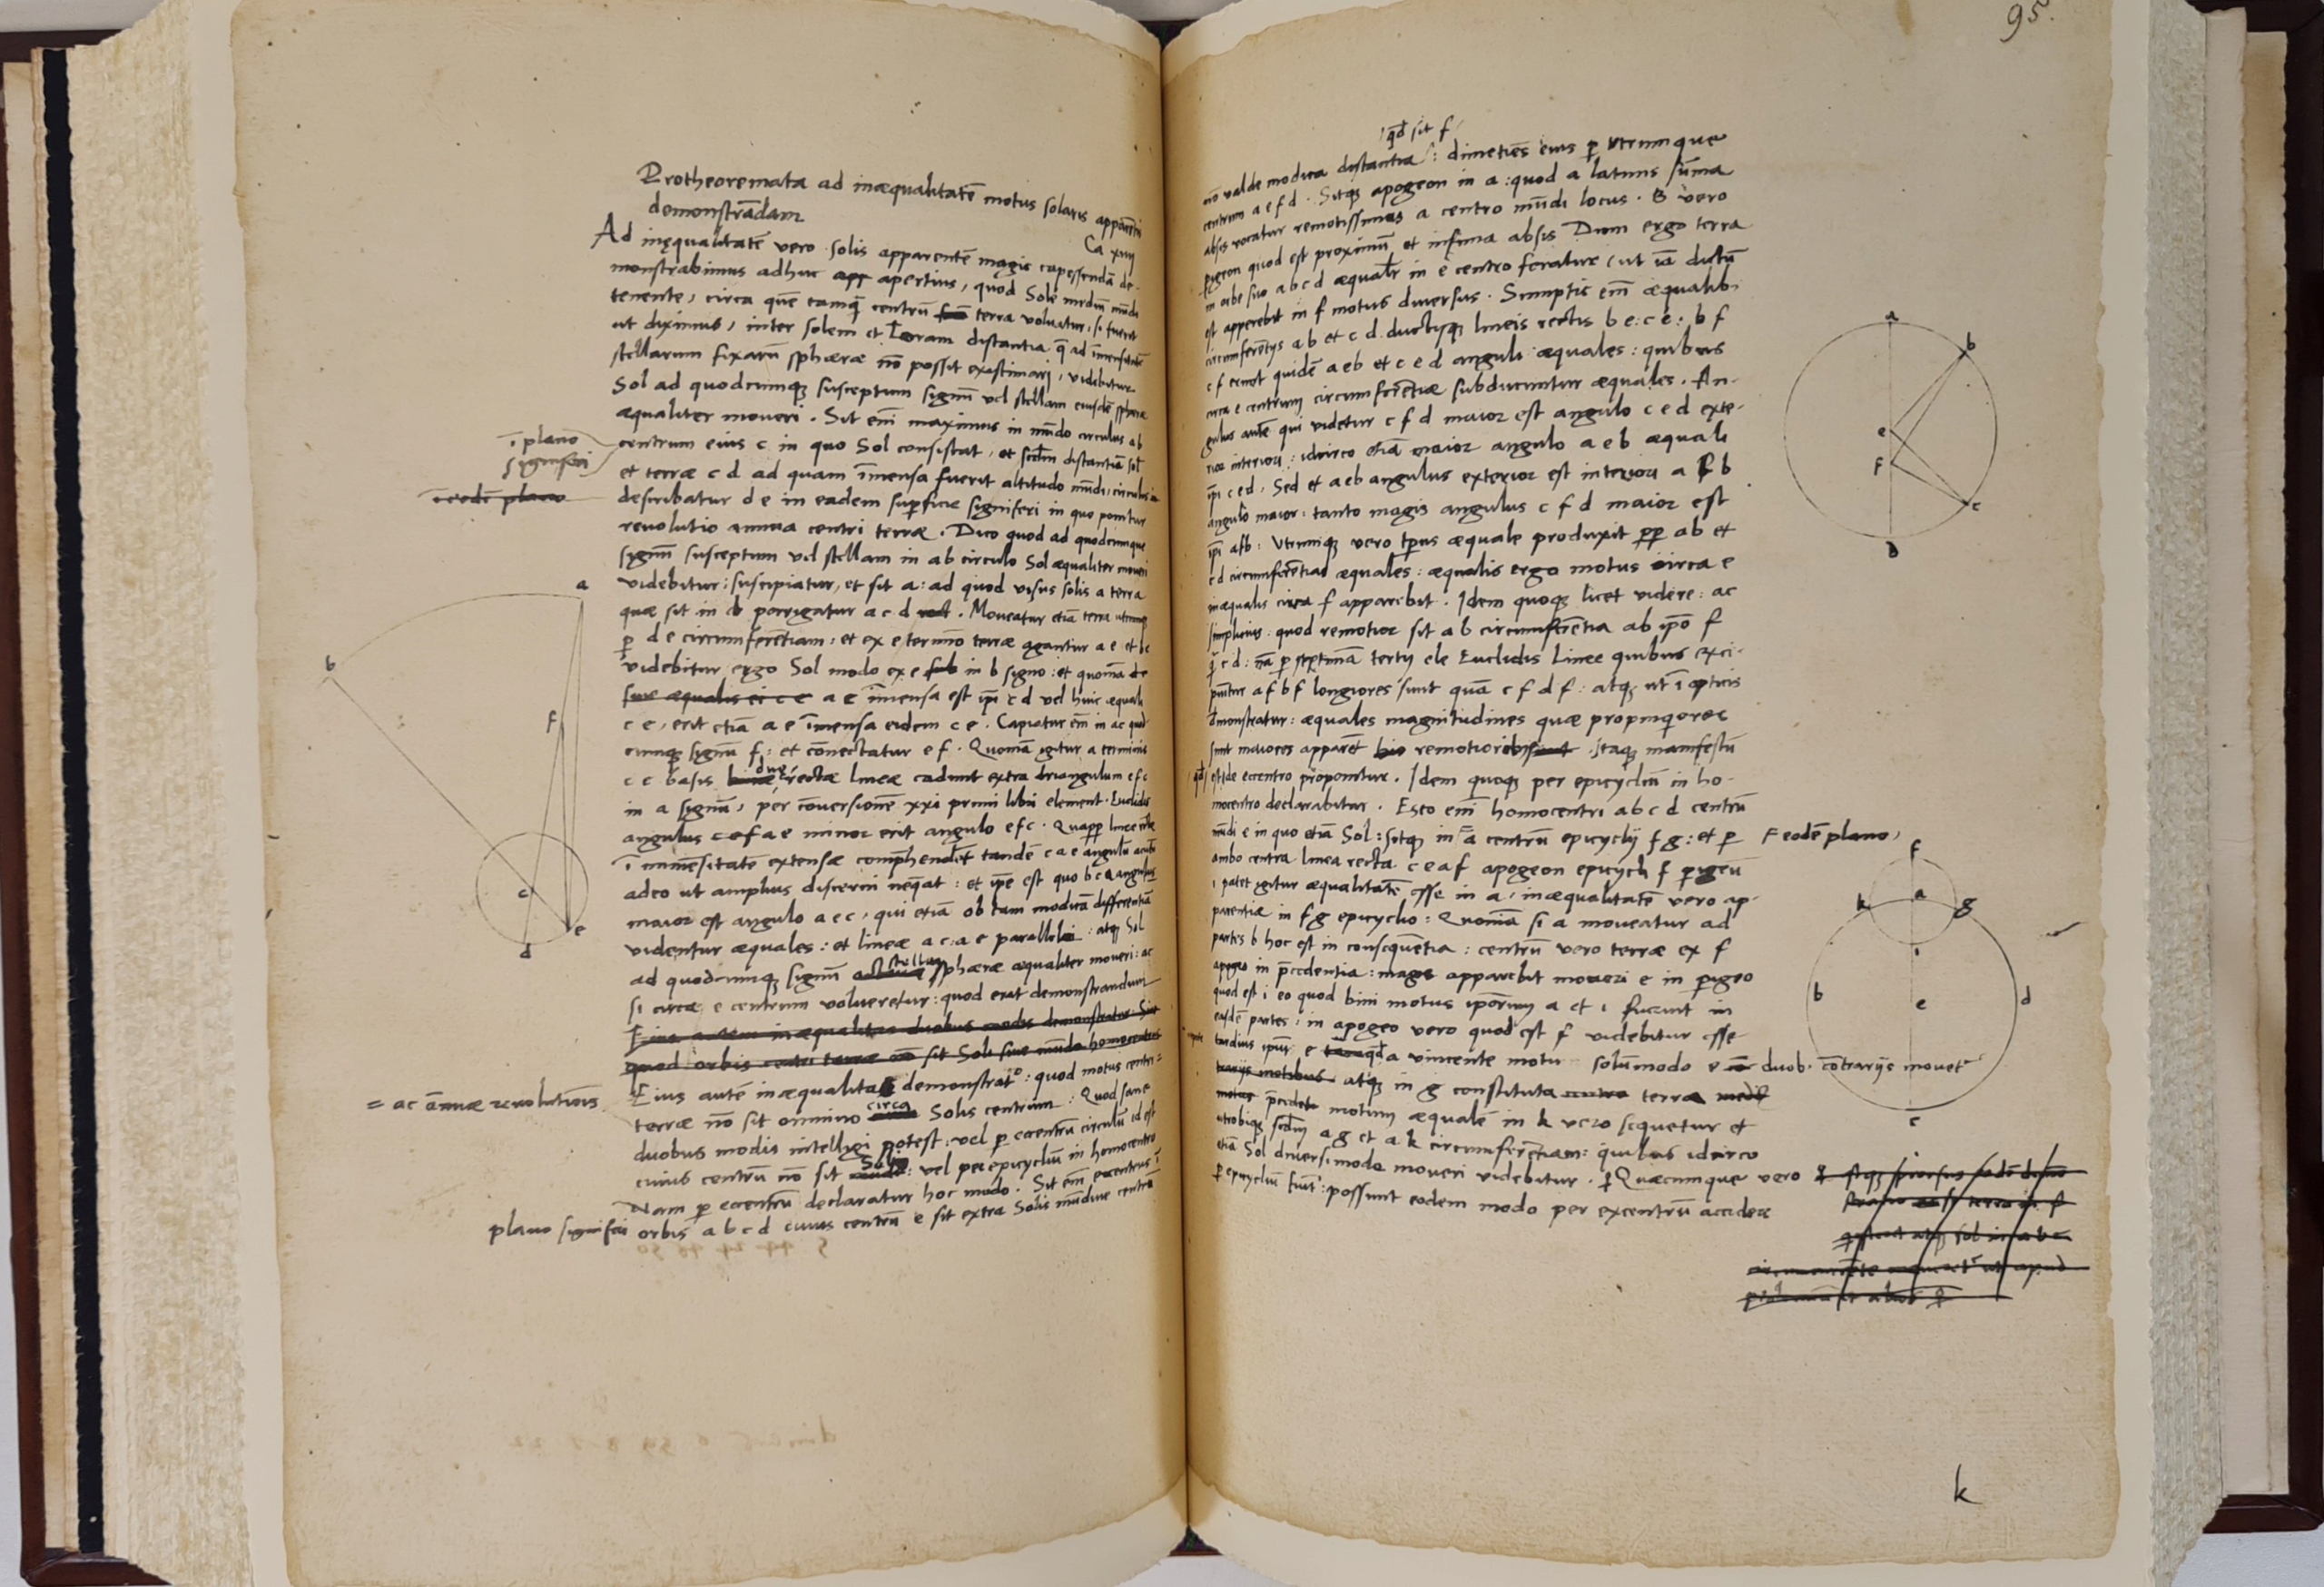 Protheoremata ad inæqualitatē motus solaris apparētis
demonstrādam
Ca xvij
Ad inęqualitatē vero solis apparentē magis capessendā de-
monstrabimus adhuc apertius, quod Sole mediū mūdi
tenente, circa quē tamq̄ centrū terra voluatur, si fuerit
ut diximus, inter solem et terram distantia q̄ ad īmensitatē
stellarum fixarū sphæræ nō possit existimari, videbitur
Sol ad quodcumq; susceptum signū vel stellam eiusdē sphæræ
æqualiter moveri. Sit em̄ maximus in mūdo circulus ab
ī plano
signiferi
centrum eius c in quo Sol consistat, et scdm distantiā sol
et terræ c d ad quam īmensa fuerit altitudo mūdi, circulus
describatur d e in eadem suꝑficie signiferi in quo ponitur
revolutio annua centri terræ. Dico quod ad quodcumque
signū susceptum vel stellam in ab circulo Sol æqualiter moveri
videbitur: suscipiatur, et sit a: ad quod visus solis a terra
quæ sit in d porrigatur a c d. Moveatur etiā terra utcumq;
ꝑ d e circumferētiam: et ex e termīo terræ agantur a e et b e
videbitur ergo Sol modo ex e in b signo: et quoniā de
a c īmensa est ip̄i c d vel huic æquali
c e, erit etiā a e īmensa eidem c e. Capiatur em̄ in ac quod
cumq; signū f: et cōnectatur e f. Quoniā igitur a terminis
c e basis duę rectæ lineæ cadunt extra triangulum efc
in a signū, per cōversionē xxi primi libri element. Euclidis
angulus f a e minor erit angulo efc. Quapp̄ lineæ rectæ
ī immēsitatē extensæ comp̄hendēt tandē c a e angulū acutū
adeo ut amplius discerni neq̄at: et ip̄e est quo b c a angulus
maior est angulo a e c, qui etiā ob tam modicā differentiā
videntur æquales: et lineæ a c: a e parallili: atq; Sol
ad quodcumq; signū stellar sphæræ æqualiter moveri: ac
si circa e centrum volueretur: quod erat demonstrandum
Eius autē inæqualitas demonstratʳ: quod motus centri =
= ac ānuæ revolutionis
terræ nō sit omnino circa Solis centrum: Quod sane
duobus modis intelligi potest, vel ꝑ eccentrū circulū id est
cuius centrū nō sit Solis: vel per epicycliū in homocentro
Nam ꝑ eccentrū declaratur hoc modo. Sit em̄ excentrus ī
plano signiferi orbis a b c d cuius centrū e sit extra Solis mūdive centrū
a
b
f
c
e
d
95.
qd sit f
nō valde modica distantia: dimetiēs eius ꝑ utrumque
centrum a e f d. Sitq; apogeon in a: quod a latinis sūma
absis vocatur remotissimus a centro mūdi locus. D vero
perigeon quod est proximū et infima absis Dum ergo terra
in orbe suo a b c d æqualiter in e centro feratur (ut iā dictū
est apparebit in f motus diversus. Sumptis em̄ æqualib.
circumferētijs a b et c d ductisq; lineis rectis b e: c e: b f
c f erunt quidē a e b et c e d anguli æquales: quibus
circa e centrum circumferētiæ subducuntur æquales. An-
gulus autē qui videtur c f d maior est angulo c e d exte-
rior interiori: idcirco etiā maior angulo a e b æquali
ip̄i c e d. Sed et a e b angulus exterior est interiori a f b
angulo maior: tanto magis angulus c f d maior est
ip̄i afb: Utrumq; vero tp̄us æquale produxit ꝓp ab et
cd circumferētias æquales: æqualis ergo motus circa e
inæqualis circa f apparebit. Idem quoq; licet videre: ac
simplicius: quod remotior sit a b circumferētia ab ip̄o f
q̄ c d: nā ꝑ septimā tertij ele Euclidis Lineę quibus exci-
piuntur a f b f longiores sunt quā c f d f: atq; ut ī opticis
demonstratur: æquales magnitudines quæ propinq̄iores
sunt maiores apparēt remotioribus. Itaq; manifestū
est qd de eccentro proponitur. Idem quoq; per epicycliū in ho-
mocentro declarabitur. Esto em̄ homocentri a b c d centrū
mūdi e in quo etiā Sol: sitq; in = a centrū epicyclij f g: et ꝑ
= eodē plano
ambo centra linea recta c e a f apogeon epicyclij f ꝑigeū
i patet igitur æqualitatē esse in a, inæqualitatē vero ap-
parentiæ in f g epicyclio: Quoniā si a moveatur ad
partes b hoc est in consequentia: centrū vero terræ ex f
apogeo in p̄cedentia: magis apparebit moveri e in ꝑigeo
quod est i eo quod bini motus ip̄orum a et i fuerint in
easdē partes: in apogeo vero quod est f videbitur esse
tardius ip̄um e qd a vincente motu solūmodo e duob. cōtrarijs movetʳ
atq; in g constituta terra
p̄cedet motum æqualē in k vero sequetur et
utrobiq; scdm a g et a k circumferētiam: quibus idcirco
etiā Sol diversimode moveri videbitur. Quæcumque vero
ꝑ epicyclium fiūt: possunt eodem modo per excentrū accidere
a
b
e
F
c
D
f
k
a
g
i
b
e
d
c
k